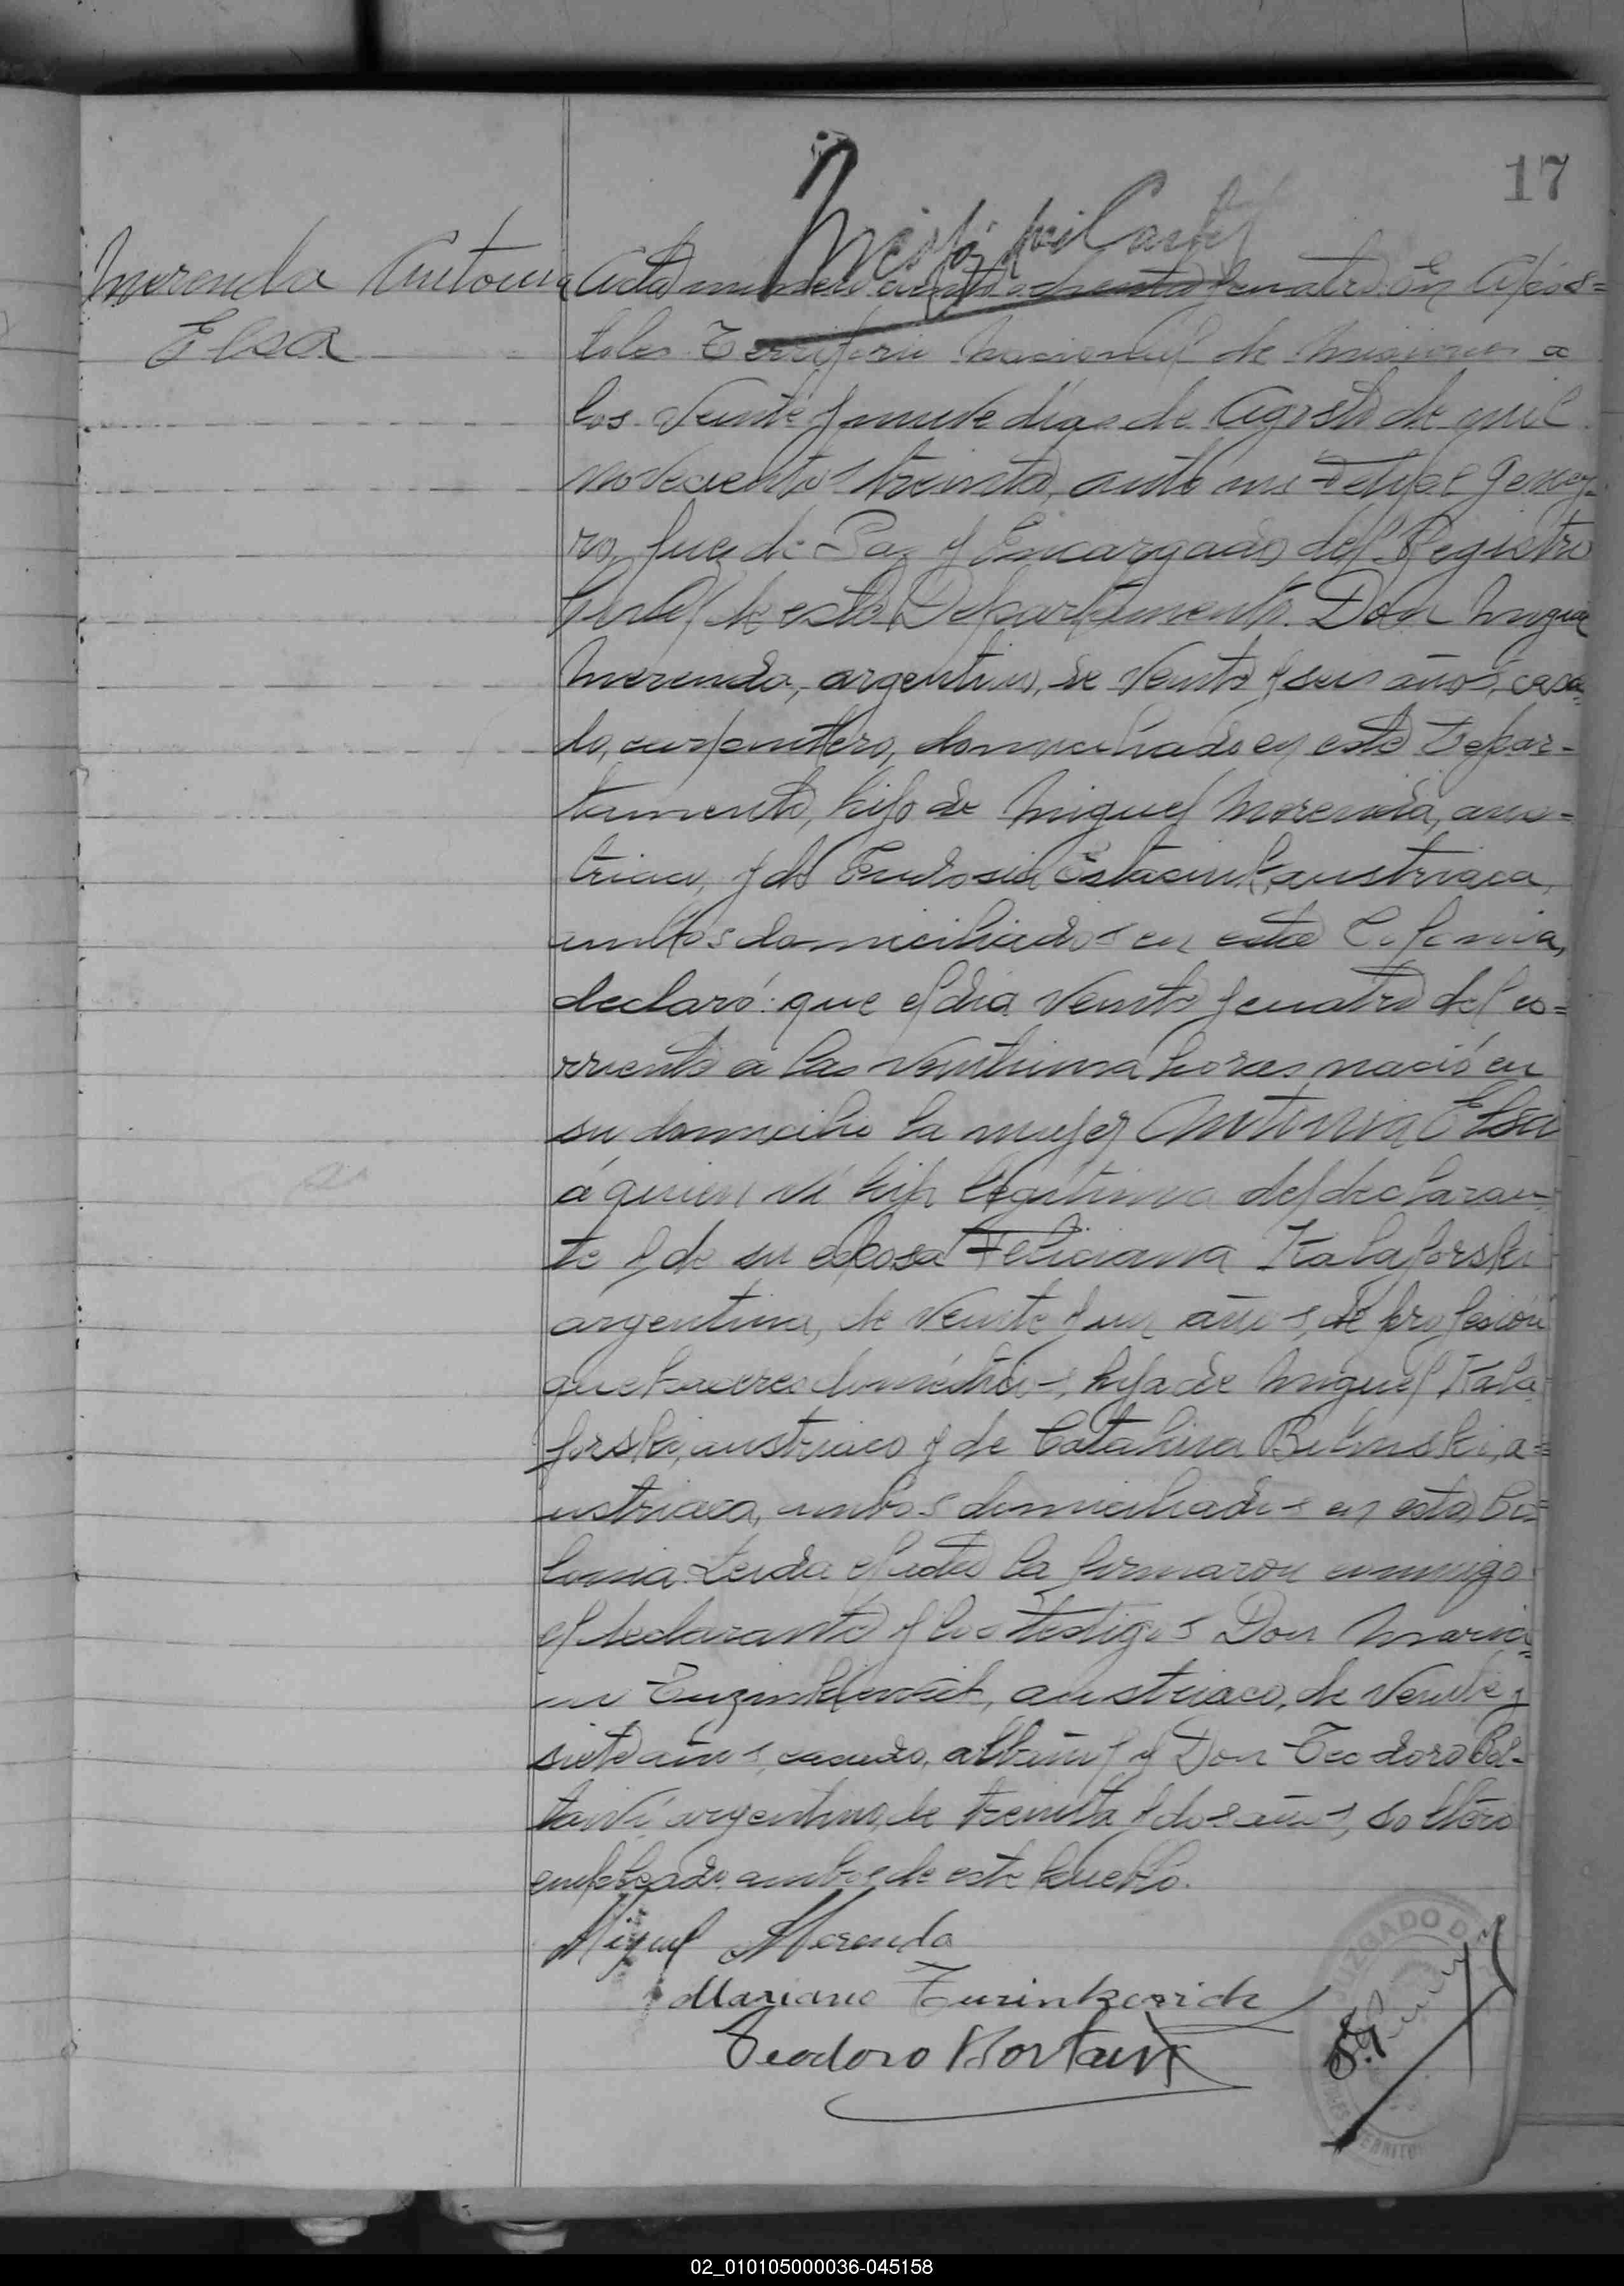 17
Merenda Antonia
Elsa
Acta número ciento ochenta y cuatro. En Apos=
toles Territorio Nacional de Misiones a
los veinte y nueve días de Agosto de mil
novecientos treinta, ante mi
ro, Juez de Paz y Encargado del Registro
Civil de este Departamento. Don Miguel
Merenda, argentino, de veinte y seis años, casa=
do, carpintero, domiciliado en este Depar-
tamento, hijo de Miguel Merenda, aus=
triaco, y de austriaca,
ambos domiciliados en esta Colonia,
declaró: que el día veinte y cuatro del co=
rriente a las veintiuna horas nació en
su domicilio la mujer Antonia Elsa
á quien ví hija legítima del declaran-
te y de su esposa Feliciana Kalaforski
argentina, de veinte y un años, de profesión
quehaceres domésticos, hija de Miguel Kala
forski, austriaco y de Catalina Bilinski, a=
ustriaca, ambos domiciliados en esta Co=
lonia. Leída el acta la firmaron conmigo
el declarante y los testigos Don Maria=
no austriaco, de veinte y
siete años, casado, albañil y Don Teodoro Bor-
taivi argentino, de treinta y dos años, soltero
empleado, ambos de este pueblo.
Miguel Merenda
Mariano Turinkevich
Teodoro Bortaivi
JUZGADO D
TERRITO
02_010105000036-045158